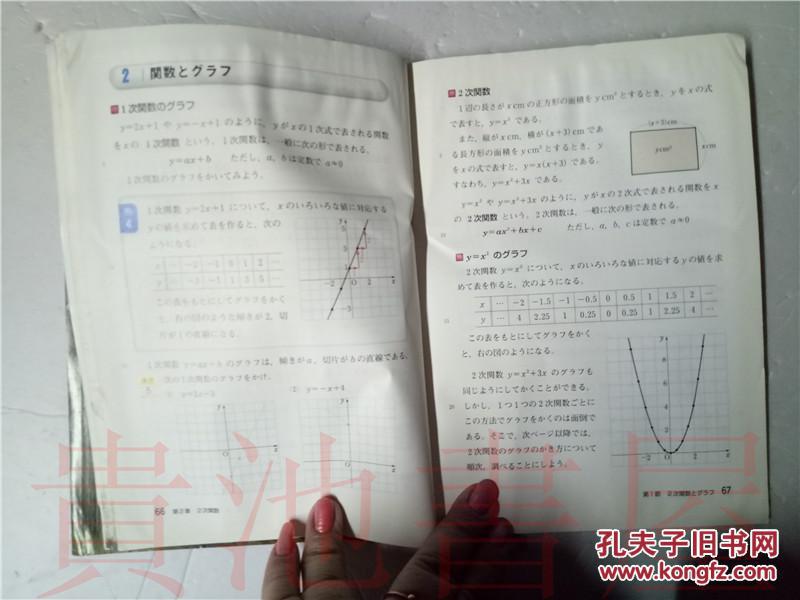 2 関数とグラフ
1次関数のグラフ
y=2x+1 や y=-x+1 のように，yがxの1次式で表される関数
をxの 1次関数 という。1次関数は，一般に次の形で表される。
y=ax+b ただし，a，bは定数で a≠0
1次関数のグラフをかいてみよう。
例
4
1次関数 y=2x+1 について，xのいろいろな値に対応する
yの値を求めて表を作ると，次の
ようになる。
x … -2 -1 0 1 2 …
y … -3 -1 1 3 5 …
この表をもとにしてグラフをかく
と，右の図のような傾きが2，切
片が1の直線になる。
1次関数 y=ax+b のグラフは，傾きがa，切片がbの直線である。
次の1次関数のグラフをかけ。
(2) y=-x+4
66 第2章 2次関数
2次関数
1辺の長さが x cm の正方形の面積を y cm² とするとき，yをxの式
で表すと，y=x² である。
また，縦が x cm，横が (x+3) cm であ
る長方形の面積を y cm² とするとき，y
をxの式で表すと，y=x(x+3) である。
すなわち，y=x²+3x である。
(x+3)cm
y cm²
x cm
y=x² や y=x²+3x のように，yがxの2次式で表される関数をx
の 2次関数 という。2次関数は，一般に次の形で表される。
y=ax²+bx+c ただし，a，b，cは定数で a≠0
y=x² のグラフ
2次関数 y=x² について，xのいろいろな値に対応するyの値を求
めて表を作ると，次のようになる。
x … -2 -1.5 -1 -0.5 0 0.5 1 1.5 2 …
y … 4 2.25 1 0.25 0 0.25 1 2.25 4 …
この表をもとにしてグラフをかく
と，右の図のようになる。
2次関数 y=x²+3x のグラフも
同じようにしてかくことができる。
しかし，1つ1つの2次関数ごとに
この方法でグラフをかくのは面倒で
ある。そこで，次ページ以降では，
2次関数のグラフのかき方について
順次，調べることにしよう。
第1節 2次関数とグラフ 67
貴池書屋
孔夫子旧书网
www.kongfz.com